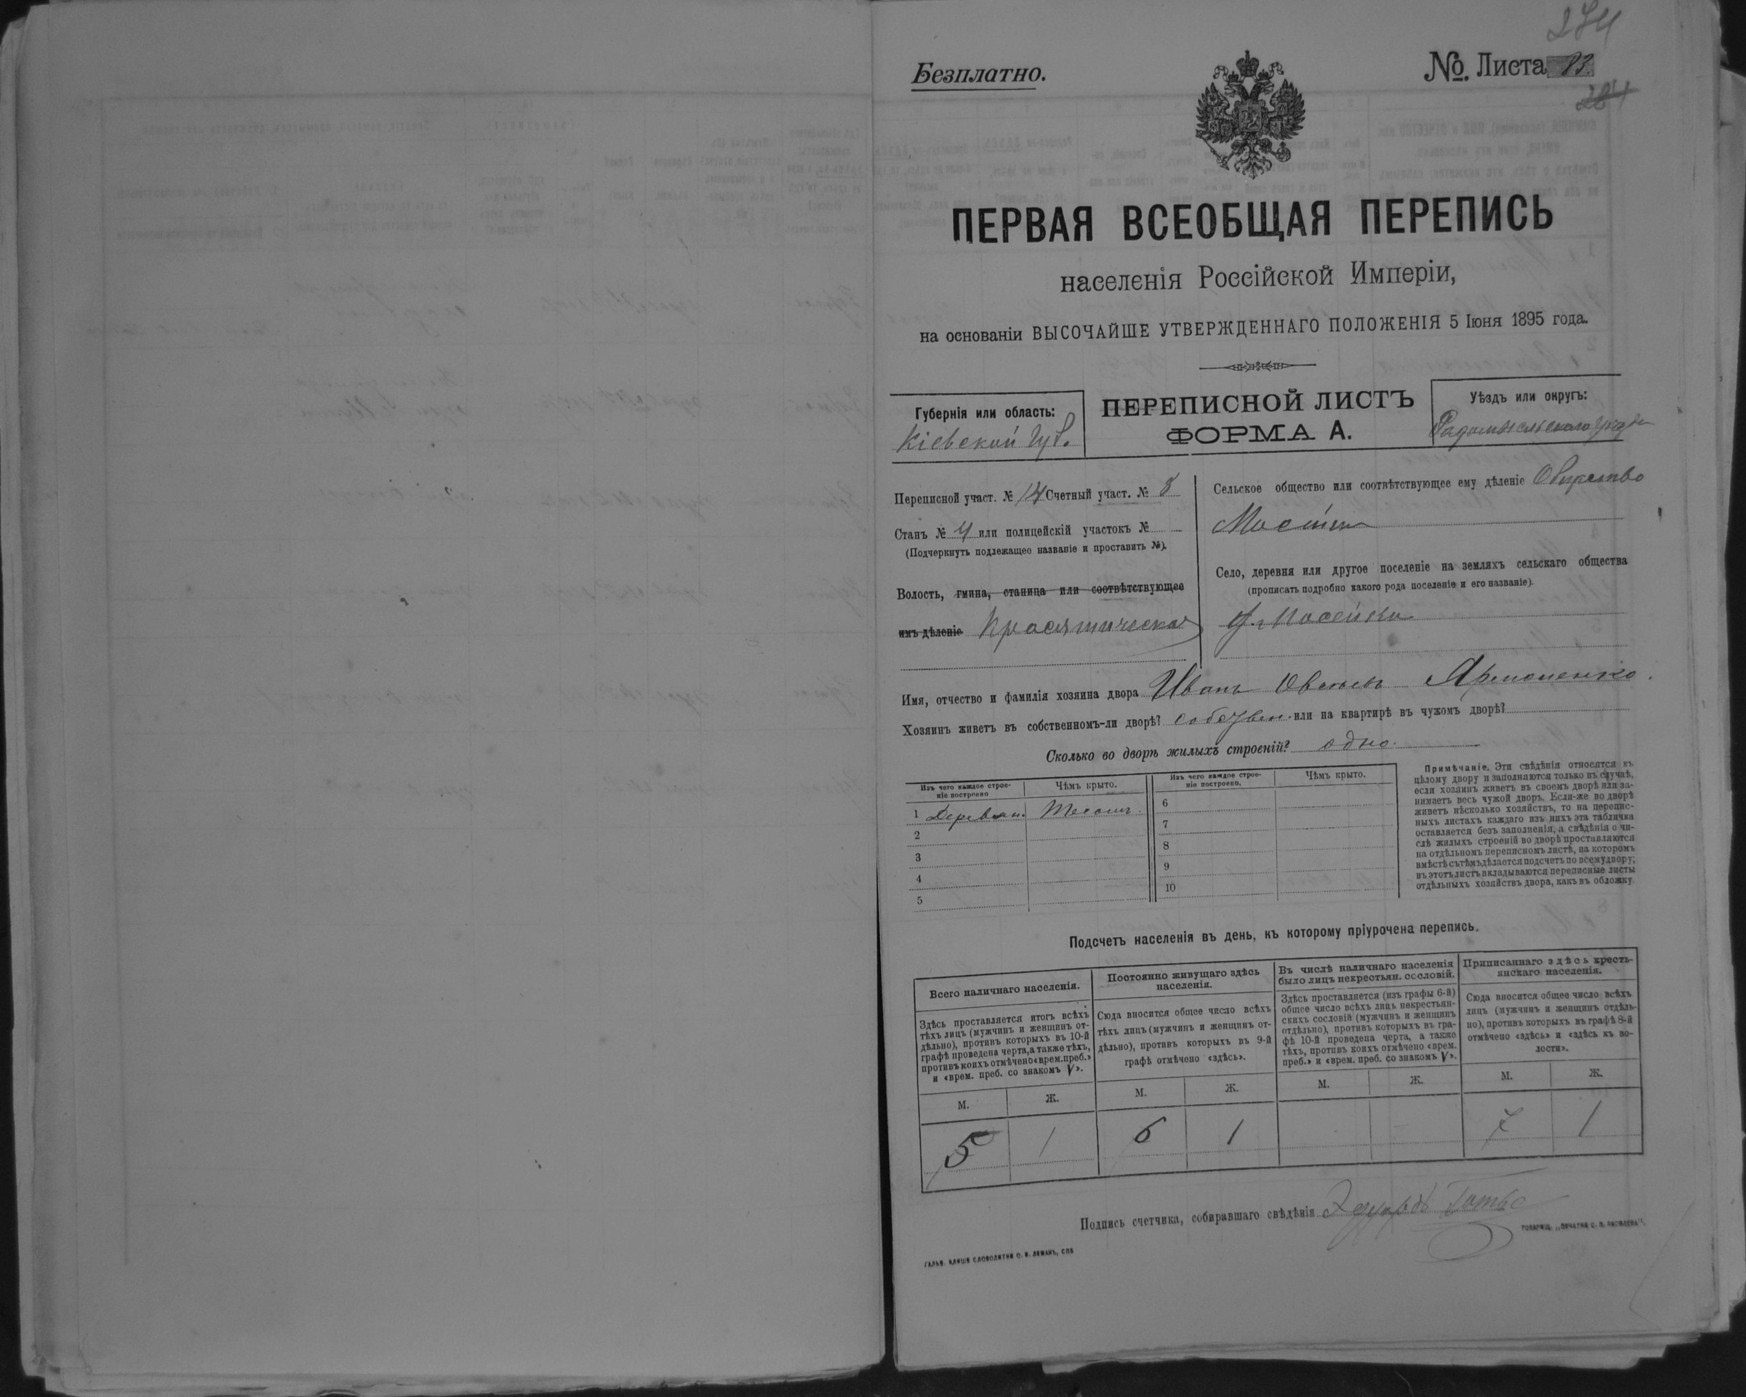 274
Безплатно.
№. Листа 83
284
ПЕРВАЯ ВСЕОБЩАЯ ПЕРЕПИСЬ
населенія Россійской Имперіи,
на основаніи ВЫСОЧАЙШЕ УТВЕРЖДЕННАГО ПОЛОЖЕНІЯ 5 Іюня 1895 года.
ПЕРЕПИСНОЙ ЛИСТЪ
ФОРМА А.
Губернія или область:
Кіевской губ.
Уѣздъ или округъ:
Радомысльскаго уѣзда
Переписной участ. № 14 Счетный участ. № 8
Станъ № 4 или полицейскій участокъ №
(Подчеркнуть подлежащее названіе и проставить №).
Волость, гмина, станица или соотвѣтствующее
имъ дѣленіе Красятическая
Сельское общество или соотвѣтствующее ему дѣленіе Общество
Село, деревня или другое поселеніе на земляхъ сельскаго общества
(прописать подробно какого рода поселеніе и его названіе).
Имя, отчество и фамилія хозяина двора Иванъ Ярмоленко
Хозяинъ живетъ въ собственномъ-ли дворѣ? собствен. или на квартирѣ въ чужомъ дворѣ?
Сколько во дворѣ жилыхъ строеній? одно.
Изъ чего каждое строеніе построено
Чѣмъ крыто.
1 Деревян. Тесомъ.
2
3
4
5
Изъ чего каждое строеніе построено.
Чѣмъ крыто.
6
7
8
9
10
Примѣчаніе. Эти свѣдѣнія относятся къ
цѣлому двору и заполняются только въ случаѣ,
если хозяинъ живетъ въ своемъ дворѣ или за-
нимаетъ весь чужой дворъ. Если-же во дворѣ
живетъ нѣсколько хозяйствъ, то на перепис-
ныхъ листахъ каждаго изъ нихъ эта табличка
оставляется безъ заполненія, а свѣдѣнія о чи-
слѣ жилыхъ строеній во дворѣ проставляются
на отдѣльномъ переписномъ листѣ, на которомъ
вмѣстѣ съ тѣмъ дѣлается подсчетъ по всему двору;
въ этотъ листъ вкладываются переписные листы
отдѣльныхъ хозяйствъ двора, какъ въ обложку.
Подсчетъ населенія въ день, къ которому пріурочена перепись.
Всего наличнаго населенія.
Здѣсь проставляется итогъ всѣхъ
тѣхъ лицъ (мужчинъ и женщинъ от-
дѣльно), противъ которыхъ въ 10-й
графѣ проведена черта, а также тѣхъ,
противъ коихъ отмѣчено «врем. преб.»
и «врем. преб. со знакомъ V».
М. Ж.
5 1
Постоянно живущаго здѣсь
населенія.
Сюда вносится общее число всѣхъ
тѣхъ лицъ (мужчинъ и женщинъ от-
дѣльно), противъ которыхъ въ 9-й
графѣ отмѣчено «здѣсь».
М. Ж.
6 1
Въ числѣ наличнаго населенія
было лицъ некрестьян. сословій.
Здѣсь проставляется (изъ графы 6-й)
общее число всѣхъ лицъ некрестьян-
скихъ сословій (мужчинъ и женщинъ
отдѣльно), противъ которыхъ въ гра-
фѣ 10-й проведена черта, а также
тѣхъ, противъ коихъ отмѣчено «врем.
преб.» и «врем. преб. со знакомъ V».
М. Ж.
Приписаннаго здѣсь кресть-
янскаго населенія.
Сюда вносится общее число всѣхъ
лицъ (мужчинъ и женщинъ отдѣль-
но), противъ которыхъ въ графѣ 8-й
отмѣчено «здѣсь» и «здѣсь къ во-
лости».
М. Ж.
7 1
Подпись счетчика, собиравшаго свѣдѣнія Эдуардъ
ГАЛЬВ. КЛИШЕ СЛОВОЛИТНИ О. И. ЛЕМАНЪ, СПБ
ТОВАРИЩ. „ПЕЧАТНЯ С. П. ЯКОВЛЕВА".